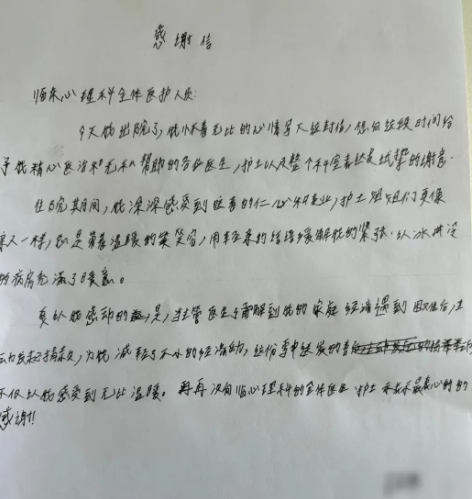 感谢信
临床心理科全体医护人员:
今天我出院了,我怀着无比的心情写下这封信,您们这段时间给
予我精心医治和无私帮助的各位医生,护士以及整个科室表达最诚挚的谢意.
住院期间,我深深感受到医者的仁心和专业,护士姐姐们更像
亲人一样,总是带着温暖的笑容,用轻柔的话语缓解我的紧张.让冰冷
的病房充满了暖意。
更让我感动的是,当主管医生了解到我的家庭经济遇到困难后,主
动 为我减轻了不小的经济,这份
不仅让我感受到无比温暖。再次向临心理科的全体医生 护士 表示最衷心的的
感谢!